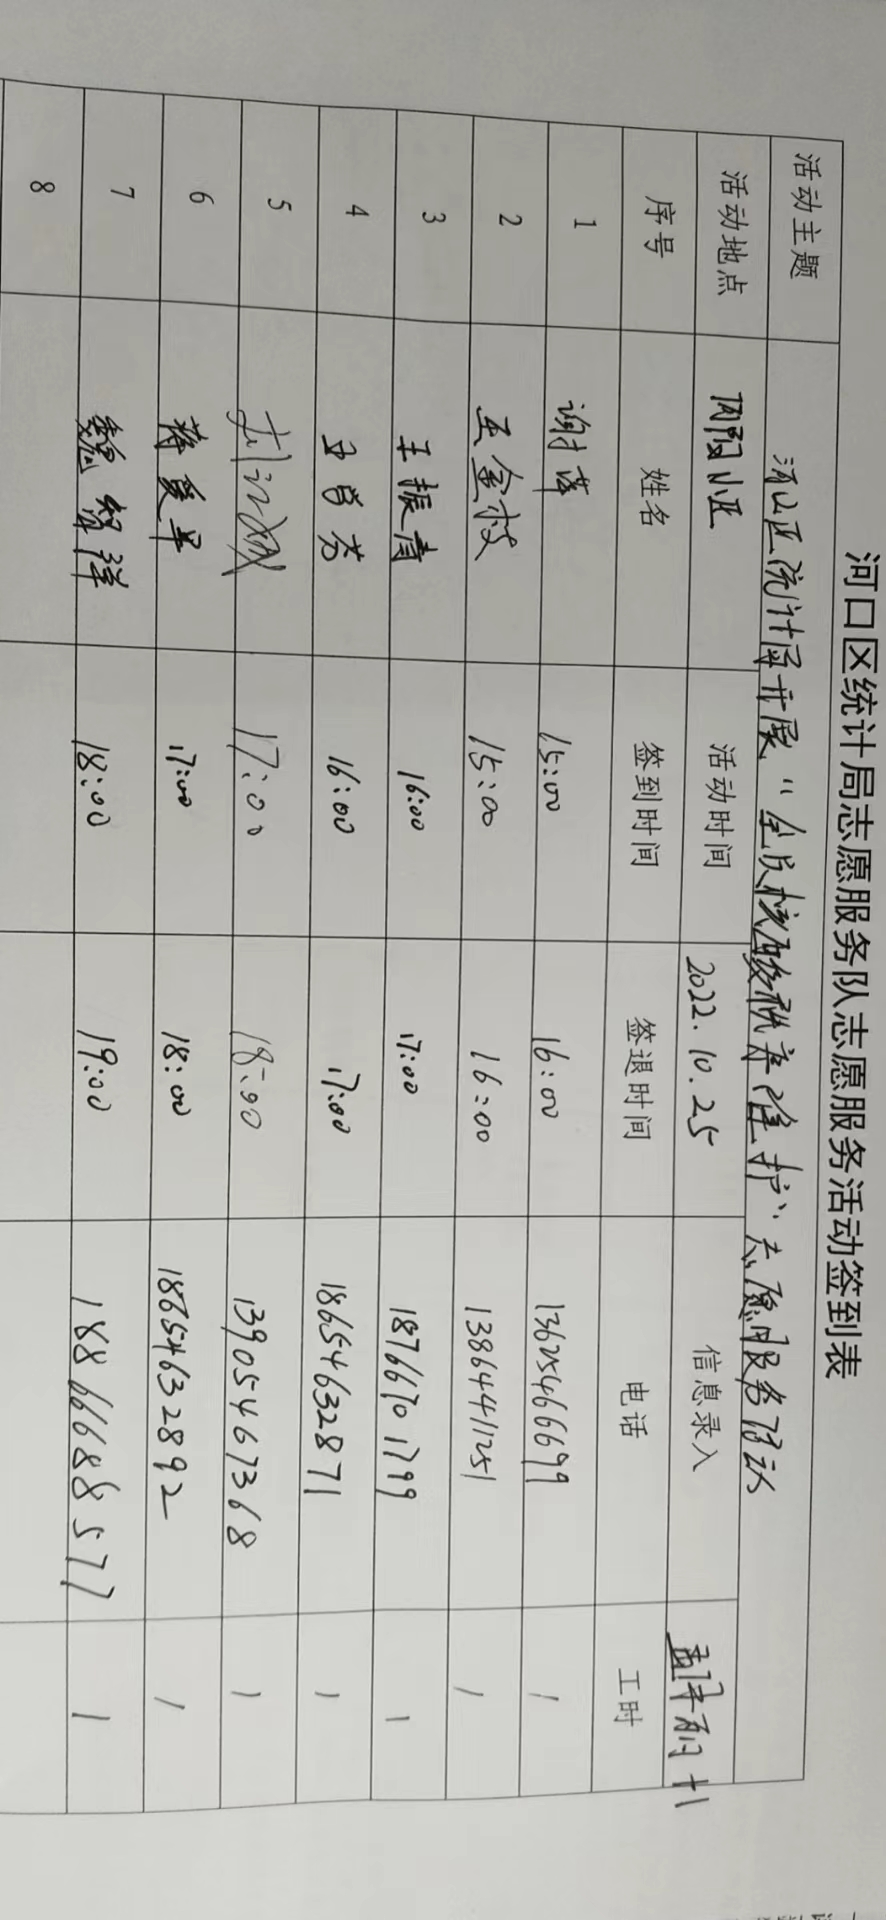 河口区统计局志愿服务队志愿服务活动签到表
活动主题 河口区统计局开展“全员核酸秩序维护”志愿服务活动
活动地点 小区 活动时间 2022.10.25 信息录入 孟
序号 姓名 签到时间 签退时间 电话 工时
1 谢萍 15:00 16:00 13625466699 1
2 王金枝 15:00 16:00 13864411251 1
3 王振青 16:00 17:00 18766701799 1
4 16:00 17:00 18654632871 1
5 17:00 18:00 13905467368 1
6 蒋爱军 17:00 18:00 18654632892 1
7 魏智祥 18:00 19:00 18866688577 1
8